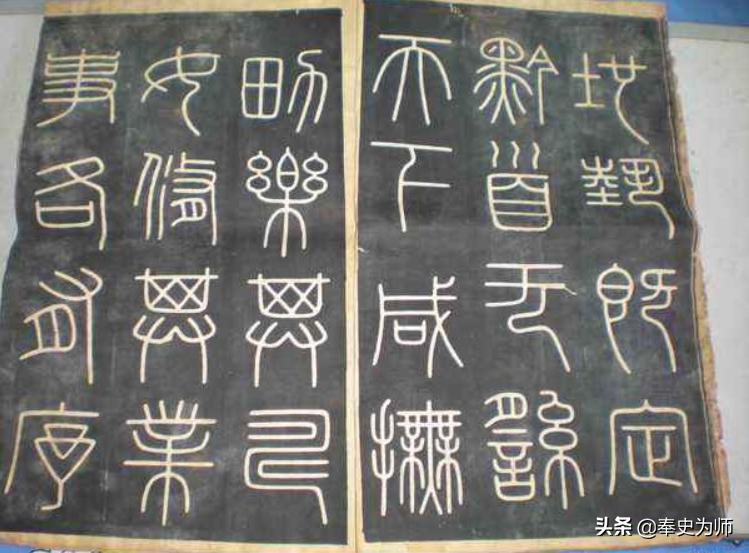 地埶既定
黔首无繇
天下咸撫
男樂其疇
女修其業
事各有序
头条 @奉史为师